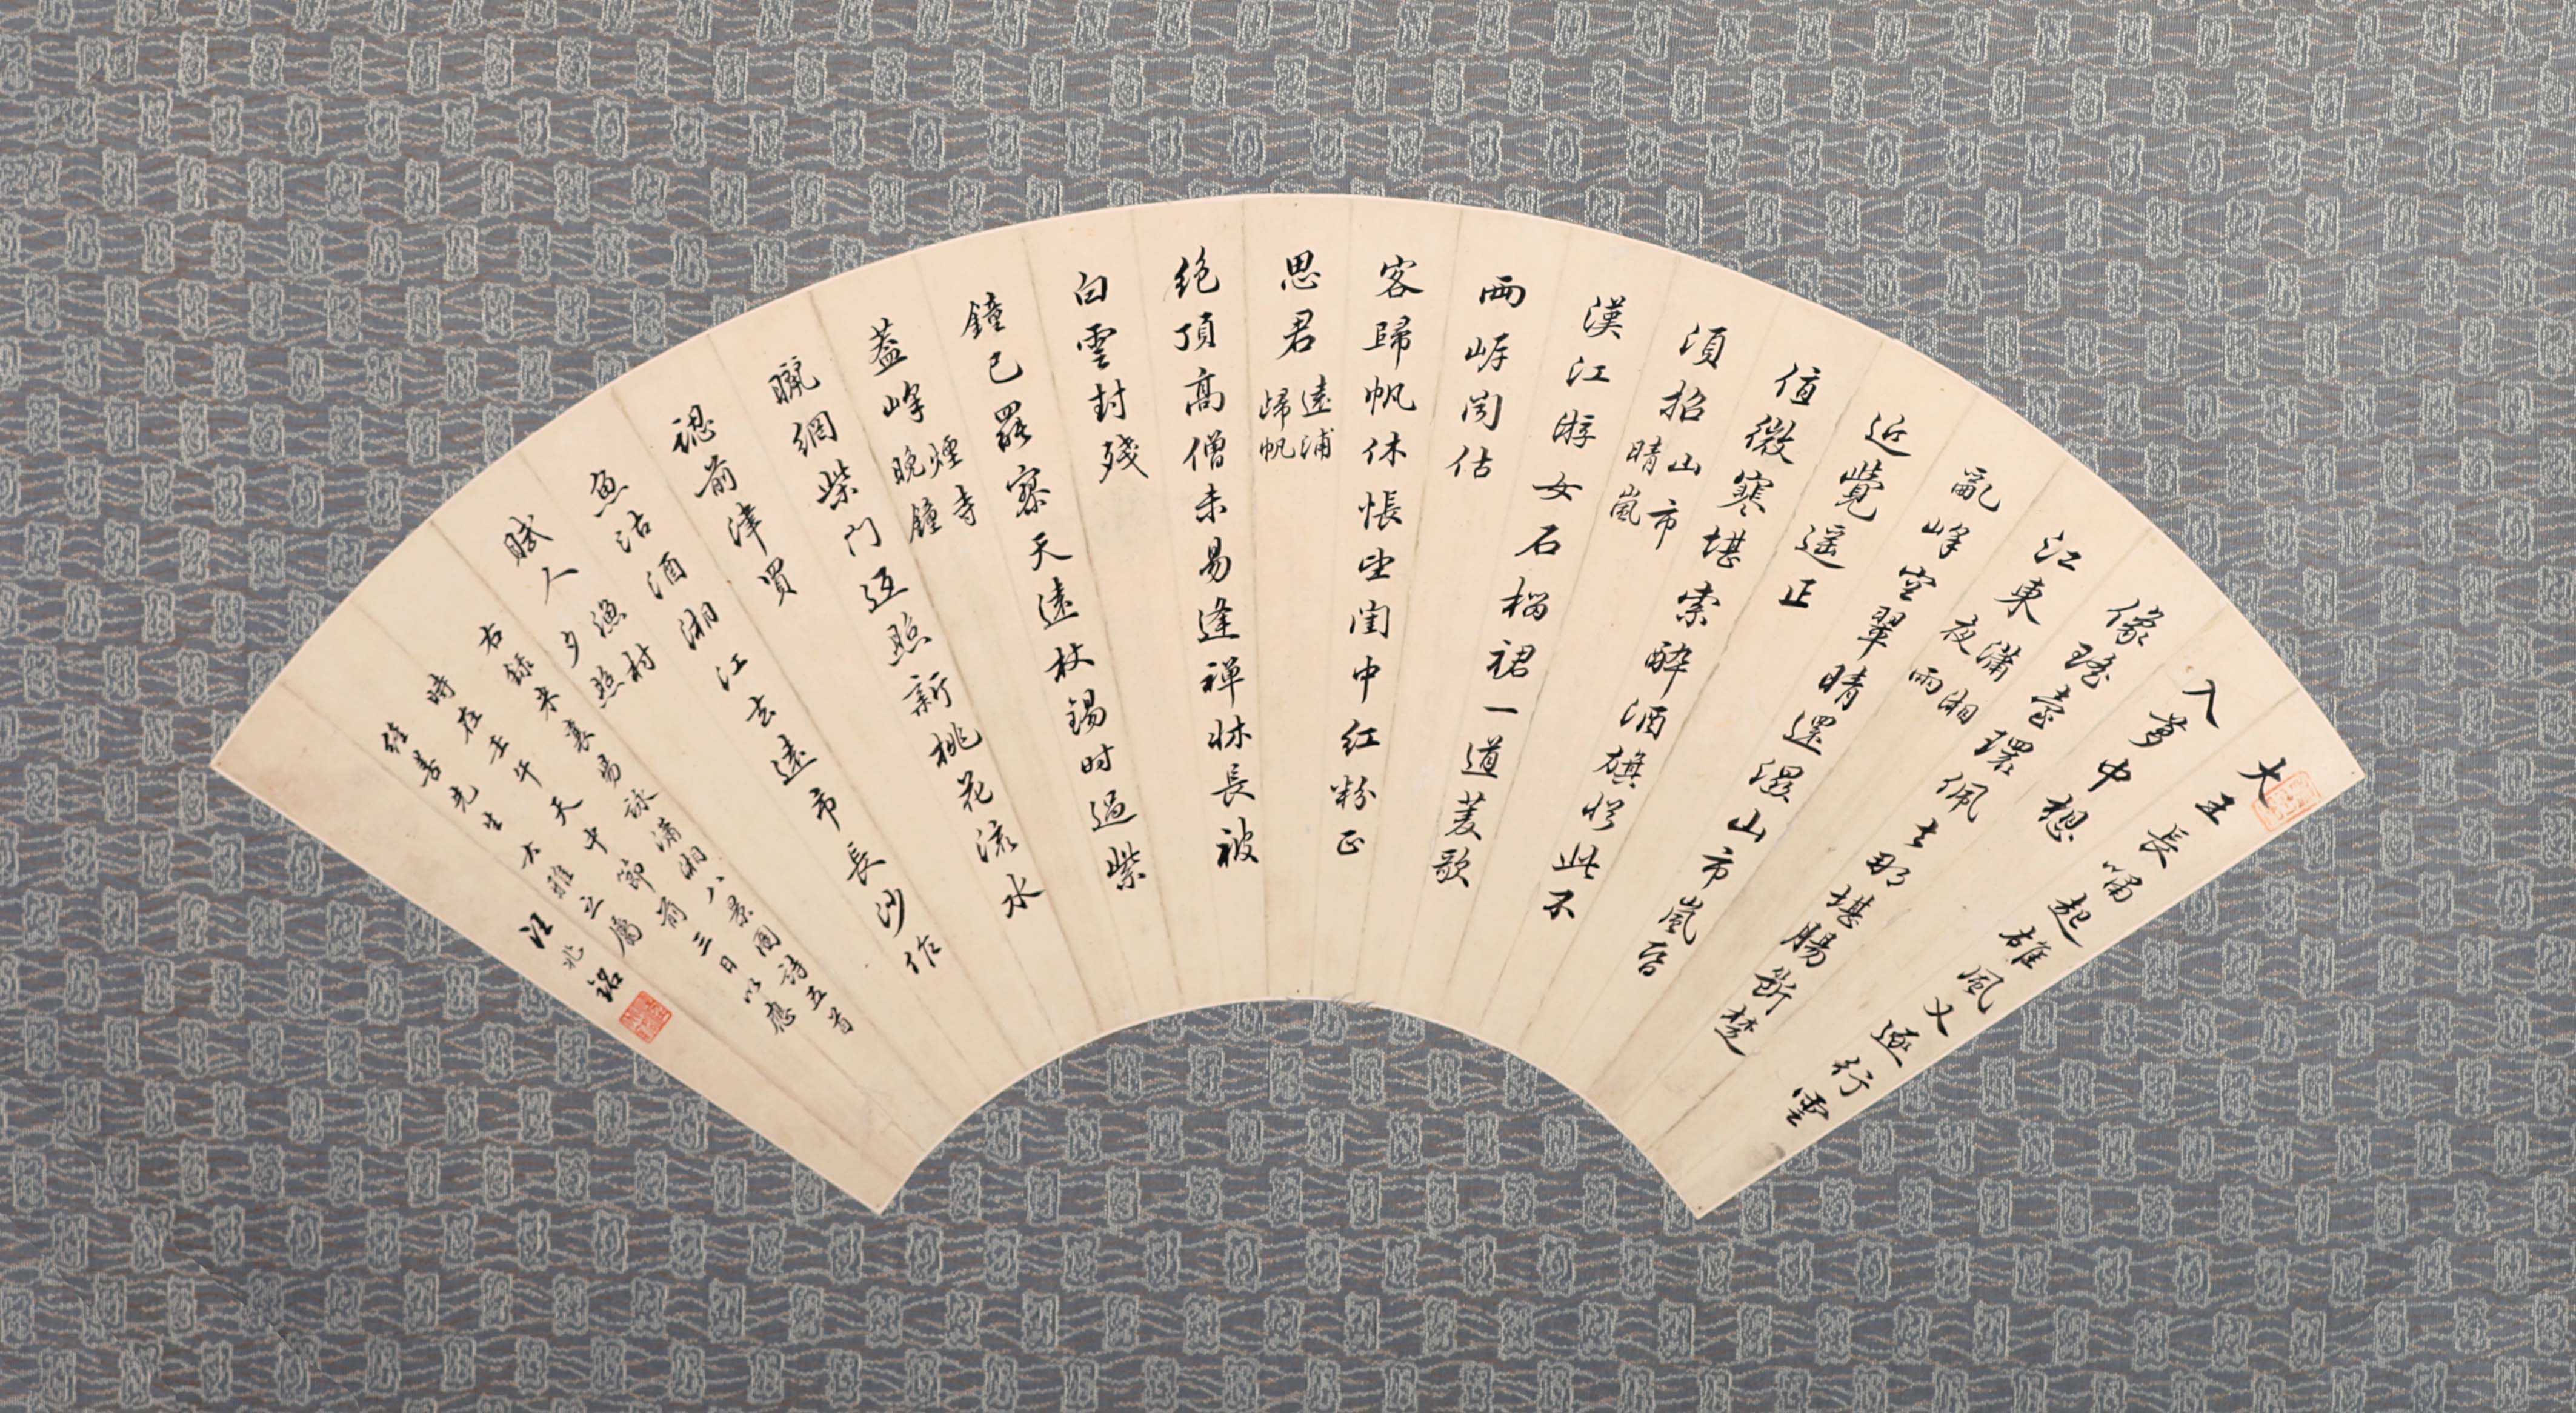 大王長嘯起雄風又逐行雲
入夢中想
像瑤臺環佩
江東瀟湘夜雨
亂峰空翠晴還濕山市嵐昏
近覺遥正
值微寒堪索醉酒旗
須招山市晴嵐
漢江游女石榴裙一道菱歌
兩岸聞估
客歸帆休悵望閨中紅粉正
思君遠浦歸帆
絶頂高僧未易逢禪牀長被
白雲封殘
鐘已罷寥天遠杖錫时過紫
蓋峰煙寺晚鐘
曬網柴门返照新桃花流水
認前津買
魚沽酒湘江去遠弔長沙作
賦人漁村夕照
右錄米襄陽詠瀟湘八景圖詩五首
時在壬午天中節前三日以應
先生大雅之屬
汪 銘